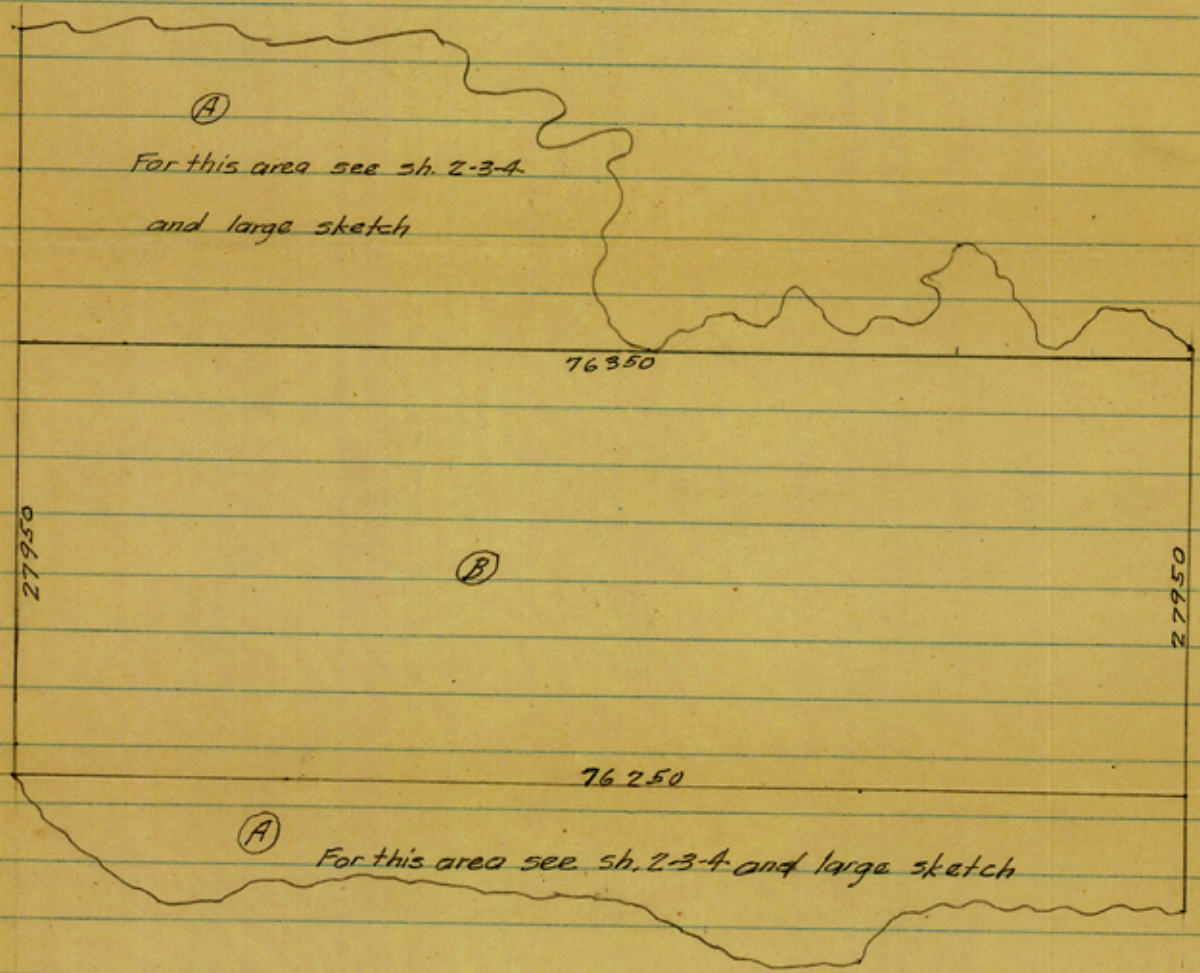 A
For this area see sh. 2-3-4
and large sketch
76350
27950
B
27950
76250
A
For this area see sh. 2-3-4 and large sketch